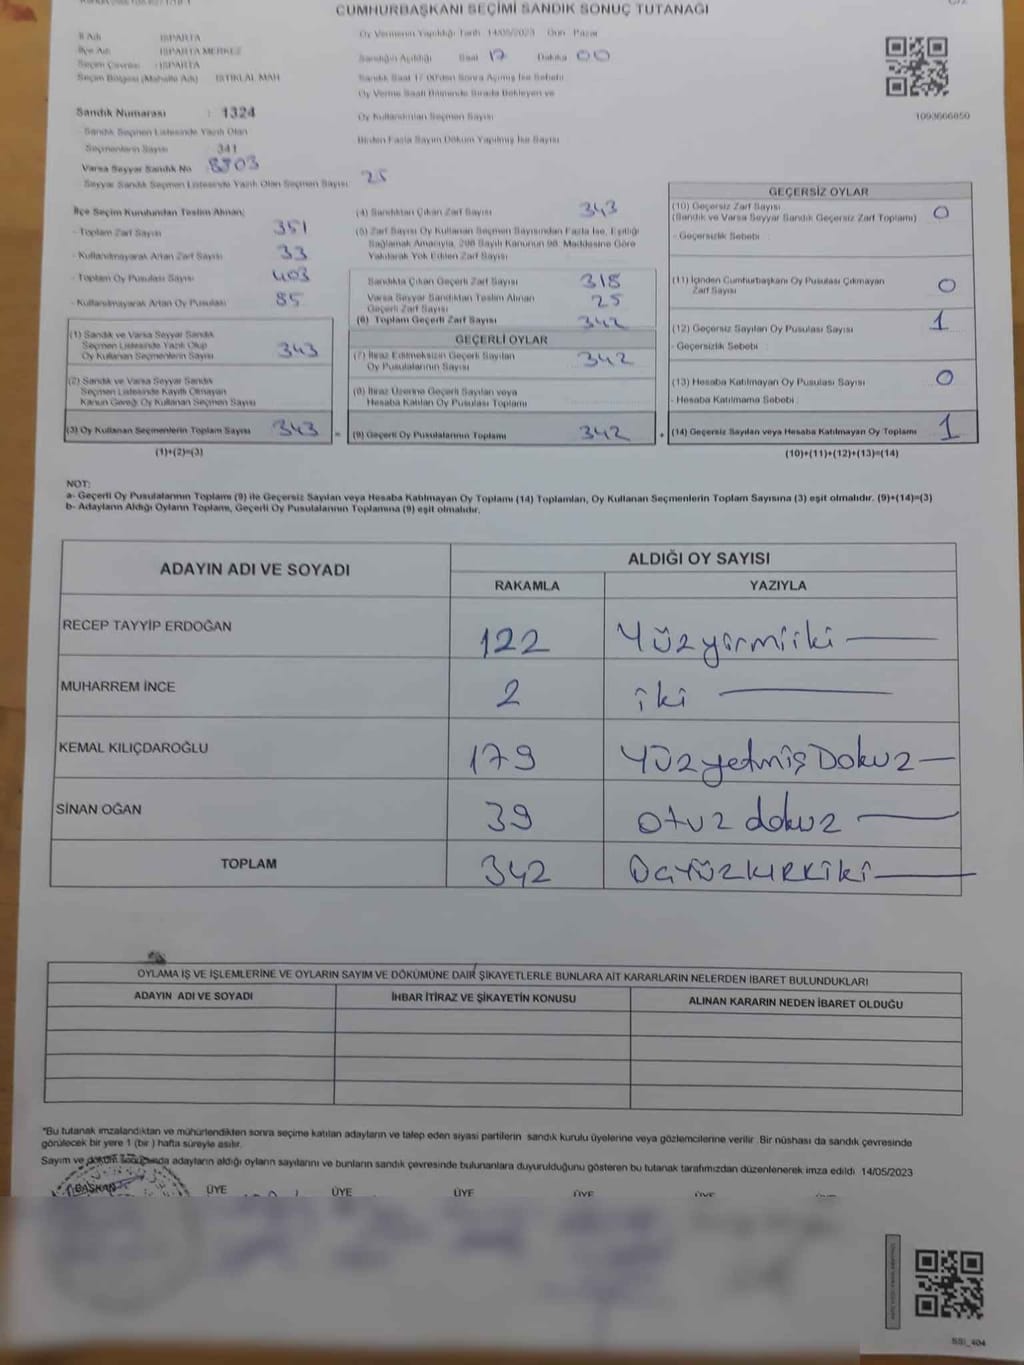 CUMHURBAŞKANI SEÇİMİ SANDIK SONUÇ TUTANAĞI
İl Adı : ISPARTA
İlçe Adı : ISPARTA MERKEZ
Seçim Çevresi : ISPARTA
Seçim Bölgesi (Mahalle Adı) : İSTİKLAL MAH
Oy Vermenin Yapıldığı Tarih 14/05/2023 Gün Pazar
Sandığın Açıldığı Saat 17 Dakika 00
Sandık Saat 17.00'den Sonra Açılmış İse Sebebi
Oy Verme Saati Bitiminde Sırada Bekleyen ve
Oy Kullandırılan Seçmen Sayısı
Birden Fazla Sayım Döküm Yapılmış İse Sayısı
1093666850
Sandık Numarası : 1324
- Sandık Seçmen Listesinde Yazılı Olan
Seçmenlerin Sayısı 341
Varsa Seyyar Sandık No 8803
Seyyar Sandık Seçmen Listesinde Yazılı Olan Seçmen Sayısı 25
İlçe Seçim Kurulundan Teslim Alınan:
- Toplam Zarf Sayısı 351
- Kullanılmayarak Artan Zarf Sayısı 33
- Toplam Oy Pusulası Sayısı 403
- Kullanılmayarak Artan Oy Pusulası 85
(1) Sandık ve Varsa Seyyar Sandık
Seçmen Listesinde Yazılı Olup
Oy Kullanan Seçmenlerin Sayısı 343
(2) Sandık ve Varsa Seyyar Sandık
Seçmen Listesinde Kayıtlı Olmayan
Kanun Gereği Oy Kullanan Seçmen Sayısı
(3) Oy Kullanan Seçmenlerin Toplam Sayısı 343 =
(1)+(2)=(3)
(4) Sandıktan Çıkan Zarf Sayısı 343
(5) Zarf Sayısı Oy Kullanan Seçmen Sayısından Fazla İse, Eşitliği
Sağlamak Amacıyla, 298 Sayılı Kanunun 98. Maddesine Göre
Yakılarak Yok Edilen Zarf Sayısı
Sandıkta Çıkan Geçerli Zarf Sayısı 318
Varsa Seyyar Sandıktan Teslim Alınan
Geçerli Zarf Sayısı 25
(6) Toplam Geçerli Zarf Sayısı 342
GEÇERLİ OYLAR
(7) İtiraz Edilmeksizin Geçerli Sayılan
Oy Pusulalarının Sayısı 342
(8) İtiraz Üzerine Geçerli Sayılan veya
Hesaba Katılan Oy Pusulası Toplamı
(9) Geçerli Oy Pusulalarının Toplamı 342 +
GEÇERSİZ OYLAR
(10) Geçersiz Zarf Sayısı
(Sandık ve Varsa Seyyar Sandık Geçersiz Zarf Toplamı) 0
- Geçersizlik Sebebi :
(11) İçinden Cumhurbaşkanı Oy Pusulası Çıkmayan
Zarf Sayısı 0
(12) Geçersiz Sayılan Oy Pusulası Sayısı 1
- Geçersizlik Sebebi :
(13) Hesaba Katılmayan Oy Pusulası Sayısı 0
- Hesaba Katılmama Sebebi :
(14) Geçersiz Sayılan veya Hesaba Katılmayan Oy Toplamı 1
(10)+(11)+(12)+(13)=(14)
NOT:
a- Geçerli Oy Pusulalarının Toplamı (9) ile Geçersiz Sayılan veya Hesaba Katılmayan Oy Toplamı (14) Toplamları, Oy Kullanan Seçmenlerin Toplam Sayısına (3) eşit olmalıdır. (9)+(14)=(3)
b- Adayların Aldığı Oyların Toplamı, Geçerli Oy Pusulalarının Toplamına (9) eşit olmalıdır.
ADAYIN ADI VE SOYADI
ALDIĞI OY SAYISI
RAKAMLA YAZIYLA
RECEP TAYYİP ERDOĞAN 122 Yüzyirmiiki
MUHARREM İNCE 2 iki
KEMAL KILIÇDAROĞLU 179 YüzyetmişDokuz
SİNAN OĞAN 39 otuz dokuz
TOPLAM 342 ÜçYÜZKIRKİKİ
OYLAMA İŞ VE İŞLEMLERİNE VE OYLARIN SAYIM VE DÖKÜMÜNE DAİR ŞİKAYETLERLE BUNLARA AİT KARARLARIN NELERDEN İBARET BULUNDUKLARI
ADAYIN ADI VE SOYADI İHBAR İTİRAZ VE ŞİKAYETİN KONUSU ALINAN KARARIN NEDEN İBARET OLDUĞU
"Bu tutanak imzalandıktan ve mühürlendikten sonra seçime katılan adayların ve talep eden siyasi partilerin sandık kurulu üyelerine veya gözlemcilerine verilir. Bir nüshası da sandık çevresinde
görülecek bir yere 1 (bir ) hafta süreyle asılır.
Sayım ve döküm sonucunda adayların aldığı oyların sayılarını ve bunların sandık çevresinde bulunanlara duyurulduğunu gösteren bu tutanak tarafımızdan düzenlenerek imza edildi. 14/05/2023
BAŞKAN ÜYE ÜYE ÜYE ÜYE ÜYE ÜYE
SSİ_404